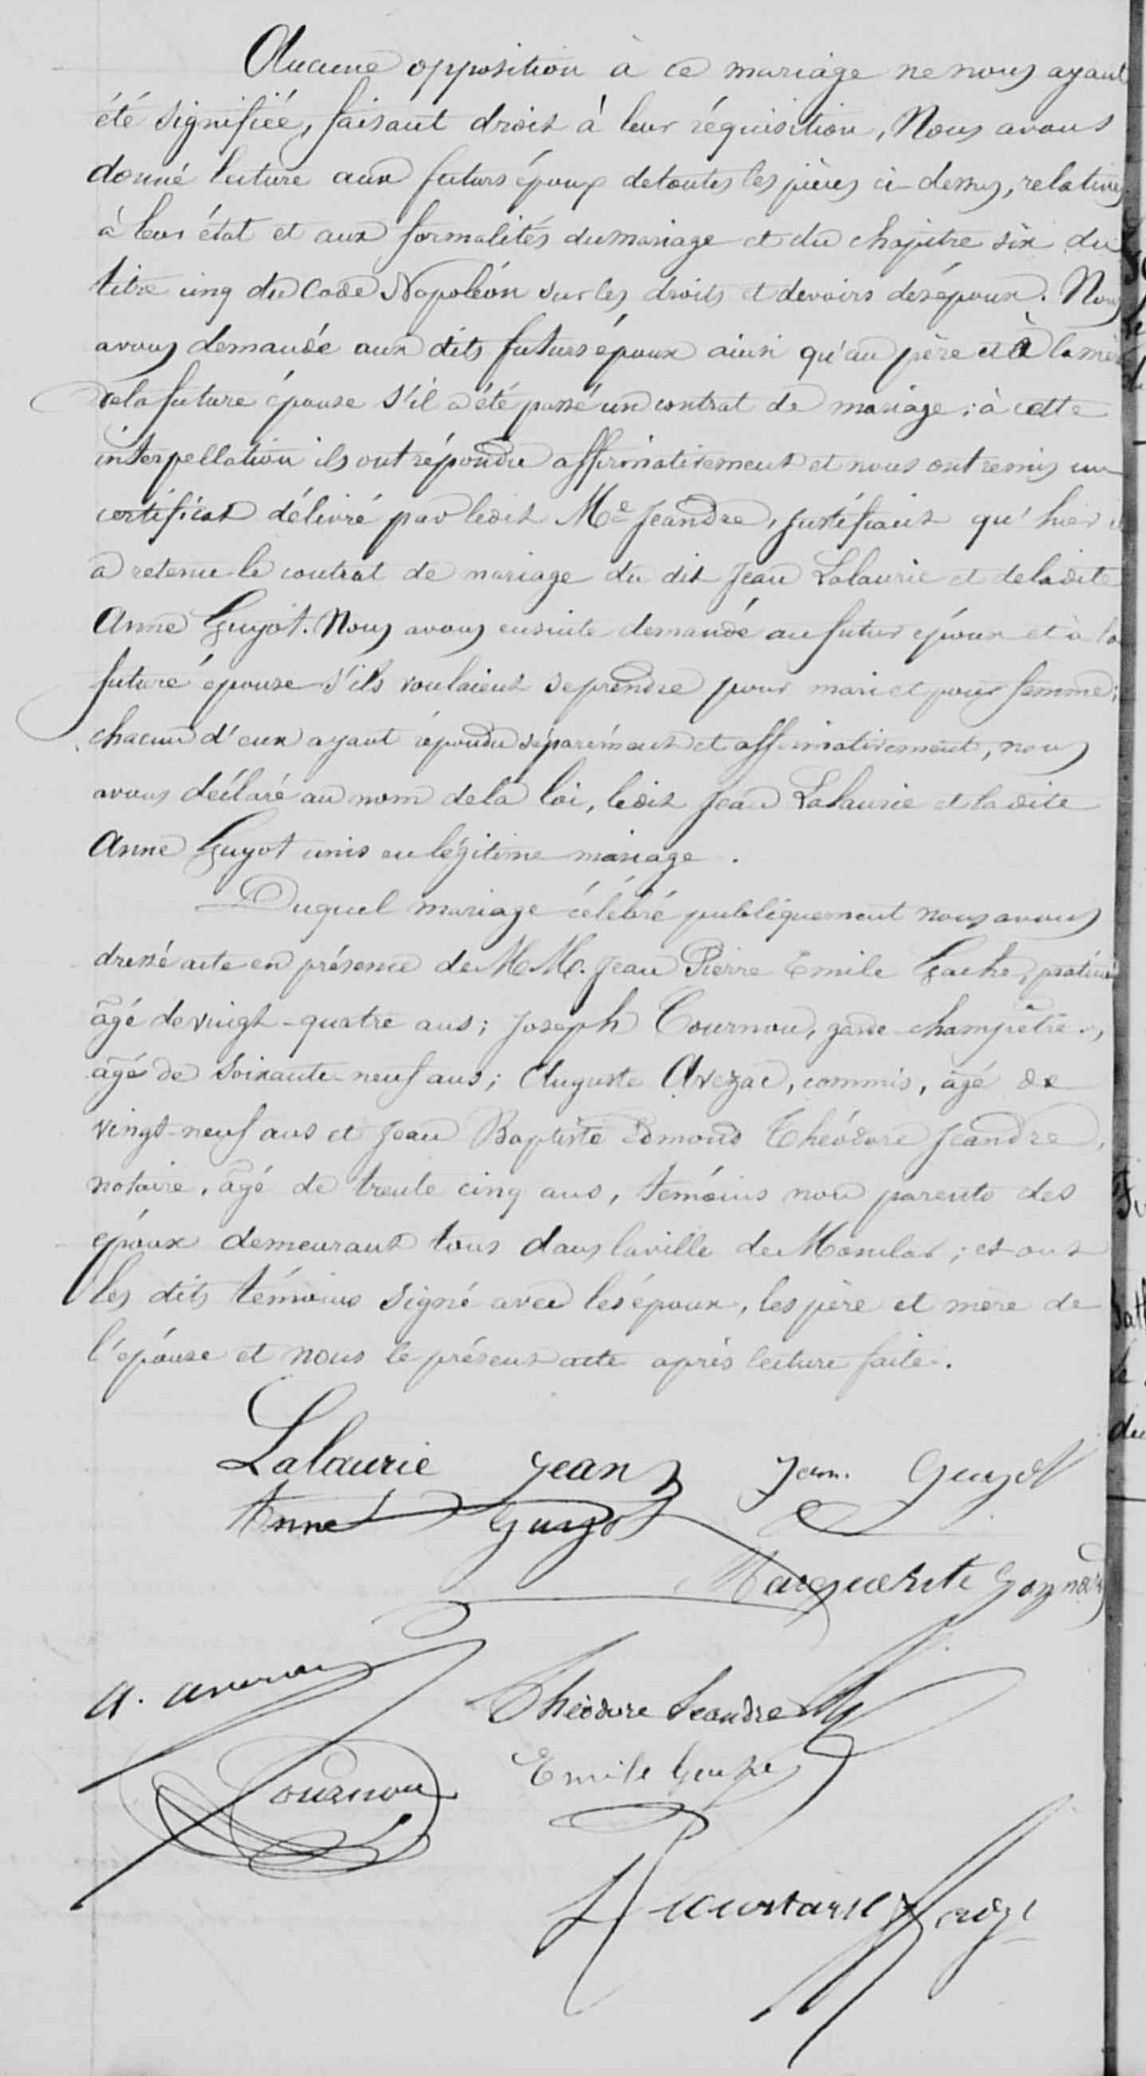 Aucune opposition à ce mariage ne nous ayant
été signifiée, faisant droit à leur réquisition, Nous avons
donné lecture aux futurs époux de toutes les pièces ci-dessus, relatives
à leur état et aux formalités du mariage et du chapitre six du
titre cinq du Code Napoléon sur les droits et devoirs des époux. Nous
avons demandé aux dits futurs époux ainsi qu'au père et à la mère
de la future épouse s'il a été passé un contrat de mariage ; à cette
interpellation ils ont répondu affirmativement et nous ont remis un
certificat délivré par ledit Me Jeandre, justifiant qu'hier il
a retenu le contrat de mariage du dit Jean Lalaurie et de la dite
Anne Guyot. Nous avons ensuite demandé au futur époux et à la
future épouse s'ils voulaient se prendre pour mari et pour femme ;
chacun d'eux ayant répondu séparément et affirmativement, nous
avons déclaré au nom de la loi, ledit Jean Lalaurie et la dite
Anne Guyot unis en légitime mariage.
Duquel mariage célébré publiquement nous avons
dressé acte en présence de M.M. Jean Pierre Emile Gache, praticien
âgé de vingt-quatre ans ; Joseph Tournou, garde-champêtre,
âgé de soixante-neuf ans ; Auguste Avezac, commis, âgé de
vingt-neuf ans et Jean Baptiste Edmond Théodore Jeandre,
notaire, âgé de trente cinq ans, témoins non parents des
époux demeurant tous dans la ville de ; et ont
les dits témoins signé avec les époux, les père et mère de
l'épouse et nous le présent acte après lecture faite.
Lalaurie Jean Jean Guyot
Anne Guyot
Marguerite
A.
Théodore Jeandre
Tournou Emile